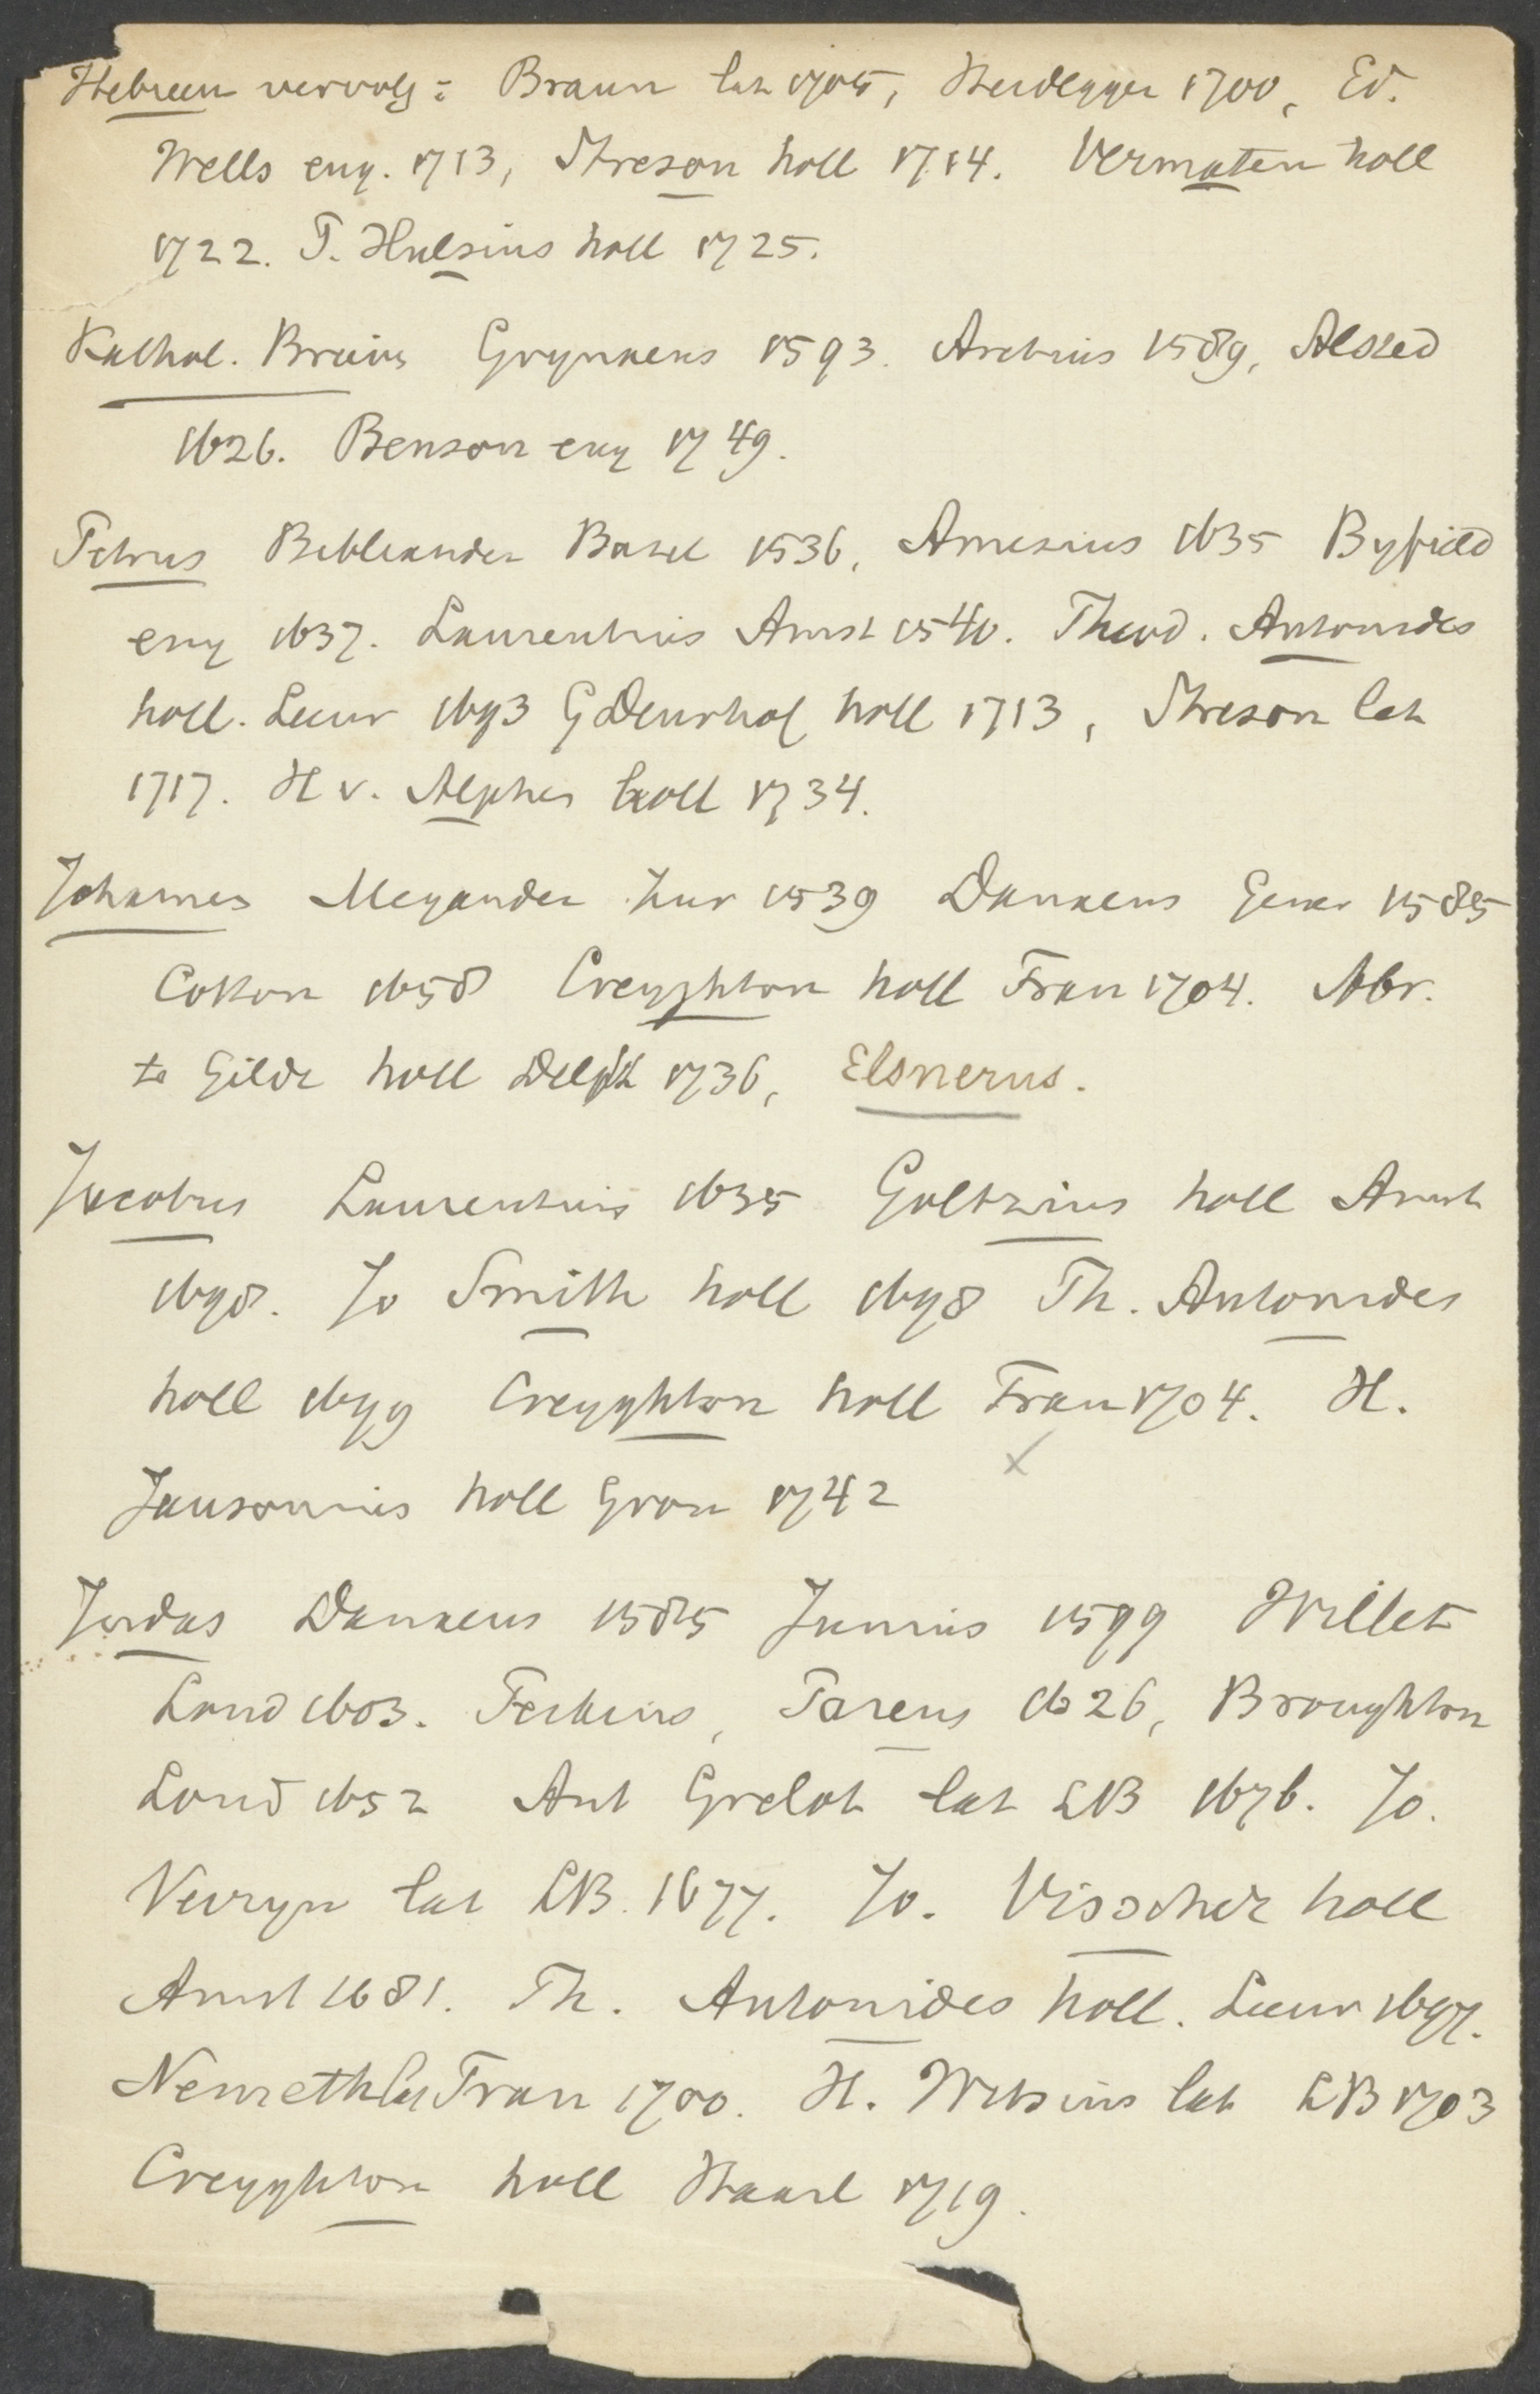 Hebreen vervolg: Braun lat 1705, Heidegger 1700, Ed.
Wells eng. 1713, Streson holl 1714. Vermaten holl
1722. P. Hulsius holl 1725.
Kathol. Breivn Grynaeus 1593. Aretius 1589, Alsted
1626. Benson eng 1749.
Petrus Bibliander Basel 1536, Amesius 1635 Byfield
eng 1637. Laurentius Amst 1540. Theod. Antonides
holl. Leeuw 1693 G Deurhof holl 1713, Streson lat
1717. H v. Alphen holl 1734.
Johannes Megander Zur 1539 Danaeus Genev 1585
Cotton 1658 Creyghton holl Fran 1704. Abr.
te Gilde holl Delft 1736, Elsnerus.
Jacobus Laurentius 1635 Goltzius holl Amst
1698. Jo Smith holl 1698 Th. Antonides
holl 1699 Creyghton holl Fran 1704. H.
Jansonius holl Gron 1742
Judas Danaeus 1585 Junius 1599 Willet
Lond 1603. Perkins, Pareus 1626, Broughton
Lond 1652 Ant Grelot lat LB 1676. Jo.
Veiryn lat LB. 1677. Jo. Visscher holl
Amst 1681. Th. Antonides holl. Leeuw 1697.
Nemeth lat Fran 1700. H. Witsius lat LB 1703
Creyghton holl Haarl 1719.